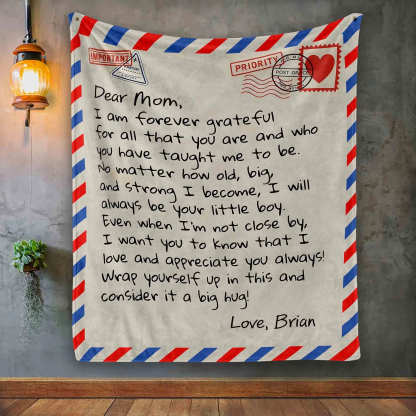 IMPORTANT
PRIORITY
POST OFFICE
Dear Mom,
I am forever grateful
for all that you are and who
you have taught me to be.
No matter how old, big,
and strong I become, I will
always be your little boy.
Even when I'm not close by,
I want you to know that I
love and appreciate you always!
Wrap yourself up in this and
consider it a big hug!
Love, Brian